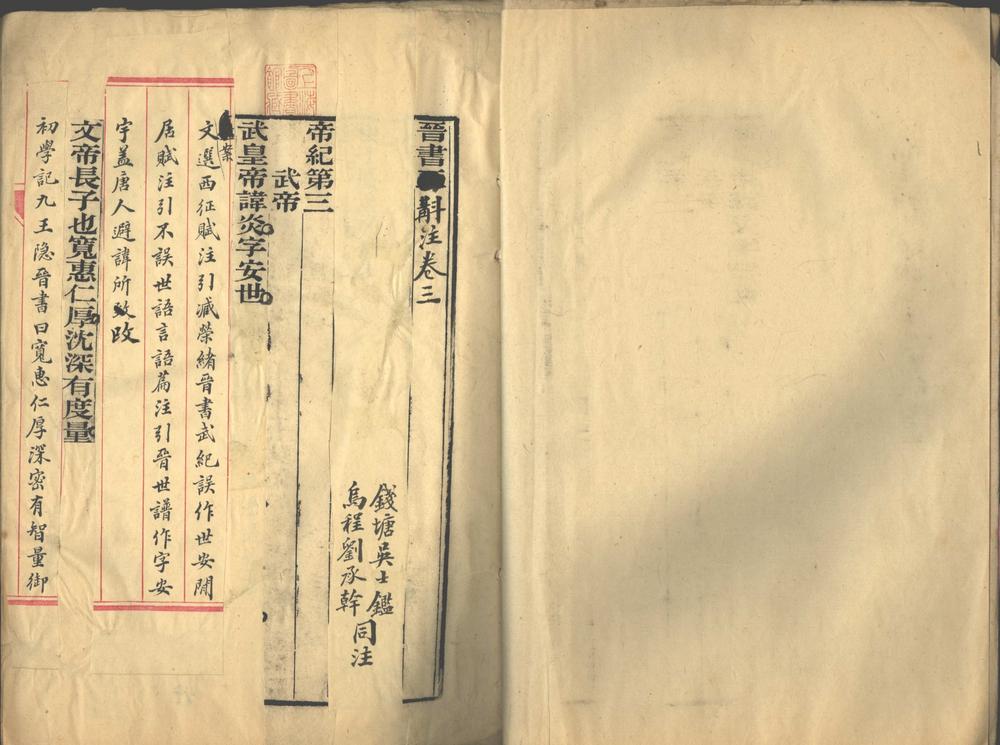 晉書斠注卷三
錢塘吳士鑑
烏程劉承幹同注
帝紀第三
武帝
武皇帝諱炎字安世
案
文選西征賦注引臧榮緒晉書武紀誤作世安閒
居賦注引不誤世語言語篇注引晉世譜作字安
宇蓋唐人避諱所改
文帝長子也寬惠仁厚沈深有度量
初學記九王隱晉書曰寬惠仁厚深密有智量御